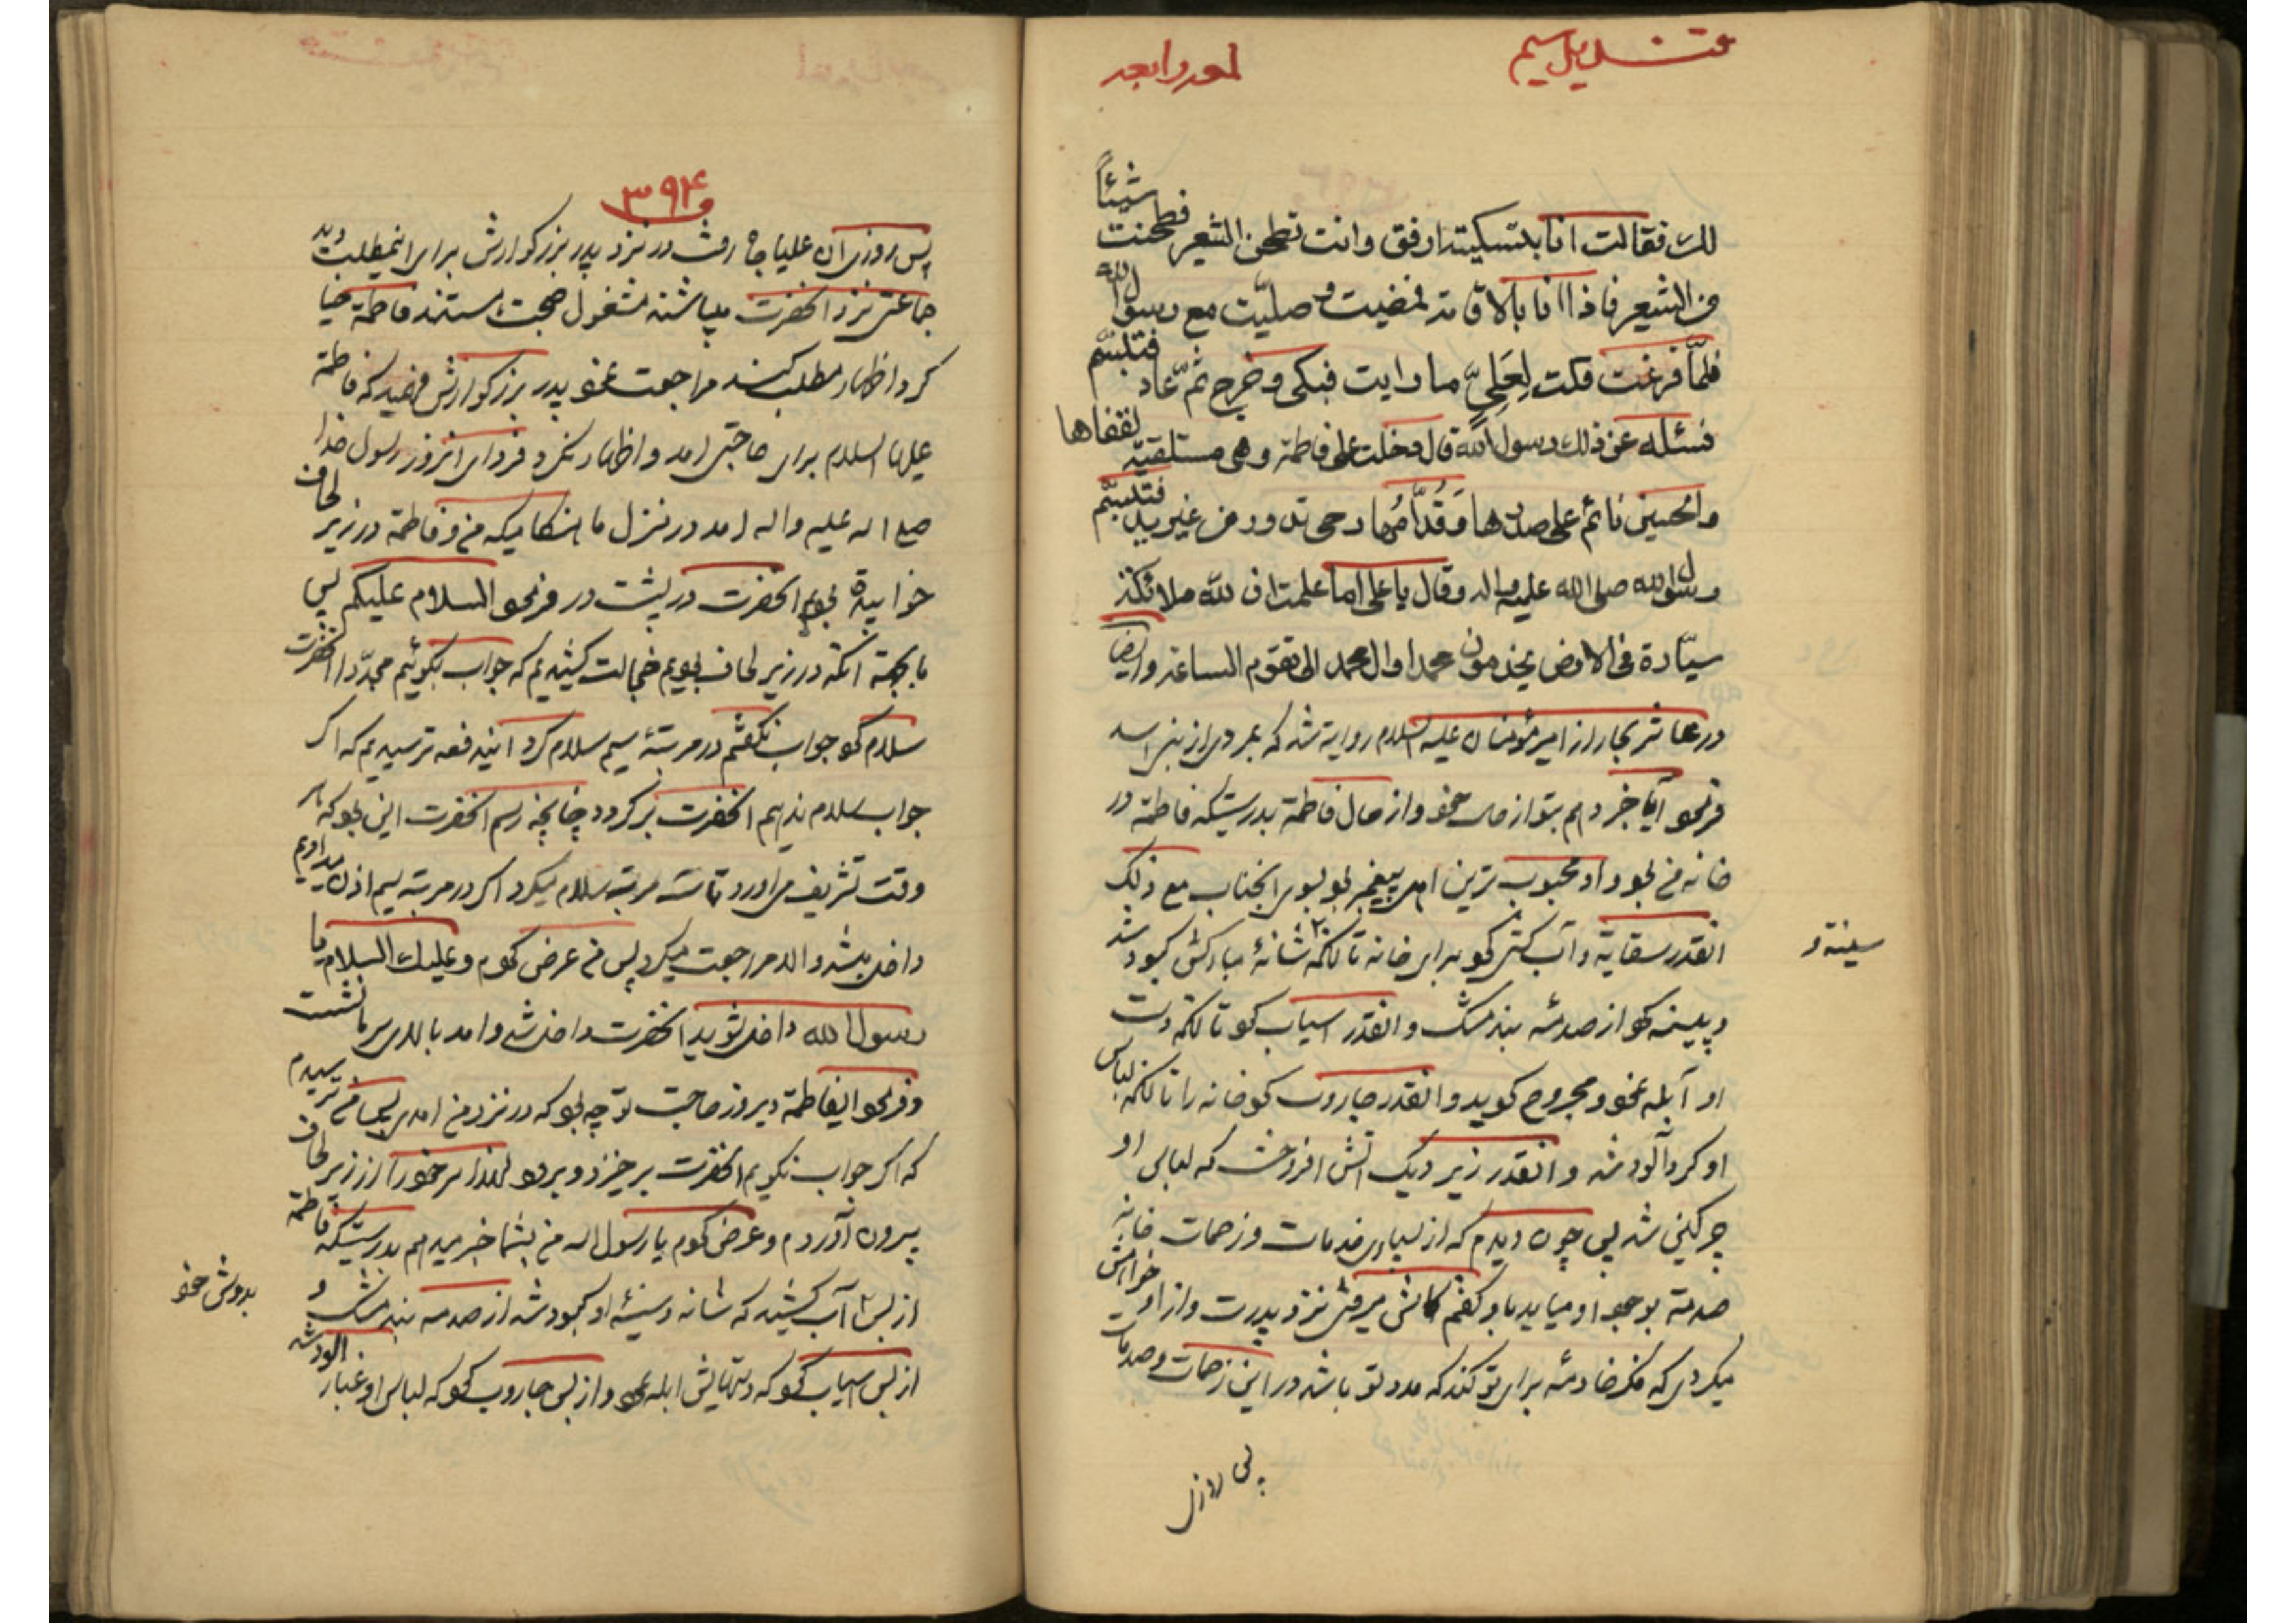 قندیل سیم
لمعه رابعه
لك فقالت انا بابنتی ارفق وانت تطحن الشعیر فطحنت شیئاً
من الشعیر فاذا انا بالاقامة فمضیت وصلیت مع رسول الله
فلمّا فرغت فکت لِعَلِیّ ما رایت فبکی وخرج ثمّ عاد فتبسّم
فسئله عن ذلك رسول الله قال دخلت علی فاطمة وهی مستلقیة لقفاها
والحسین نائم علی صدرها وَقُدّامُها رحی تدور من غیر ید فتبسّم
رسول الله صلی الله علیه واله وقال یا علی اما علمت ان لله ملائکة
سیّارة فی الارض یخدمون محمدا وال محمد الی تقوم الساعة وایضا
در عاشر بحار از امیر مؤمنان علیه السلام روایة شده که بمردی از بنی اسد
فرمود آیا خبر دهم بتو از خود و از حال فاطمة بدرستیکه فاطمة در
خانه من بود و او محبوب ترین اهل پیغمبر بود بسوی انجناب مع ذلک
انقدر سقایة و آب کشی کرد برای خانه تا انکه شانۀ مبارکش کبود شد
سینه و
و پینه کرد از صدمۀ بند مشک و انقدر اسیاب کرد تا انکه دست
او آبله نمود و مجروح گردید و انقدر جاروب کرد خانه را تا انکه لباس
او کرد آلود شد و انقدر زیر دیک اتش افروخت که لباس او
چرکین شد پس چون دیدم که از بسیاری خدمات و زحمات خانه
صدمة بوجود او میاید باو کفتم کاش میرفتی نزد پدرت و از او خواهش
میکردی که فکر خادمۀ برای تو کند که مدد تو باشد در این زحمات و صدمات
پس روزی
۳۹۴
پس روزی ان علیا جاه رفت در نزد پدر بزرکوارش برای اینمطلب دید
جماعتی نزد انحضرت میباشند مشغول صحبت هستند فاطمة حیا
کرد اظهار مطلب کند مراجعت نمود پدر بزرکوارش فهمید که فاطمة
علیها السلام برای حاجتی امد و اظهار نکرد فردای انروز رسول خدا
صلی اله علیه و اله امد در منزل ما هنکامیکه من و فاطمة در زیر لحاف
خوابیده بودیم انحضرت در پشت در فرمود السلام علیکم پس
ما بجهة انکه در زیر لحاف بودیم خجالت کشیدیم که جواب بکوئیم مجدّدا انحضرت
سلام کرد جواب نکفتیم در مرتبۀ سیم سلام کرد ایندفعه ترسیدیم که اکر
جواب سلام ندهیم انحضرت برکردد چنانچه رسم انحضرت این بود که هر
وقت تشریف می اورد تا سه مرتبه سلام میکرد اکر در مرتبه سیم اذن میدادیم
داخل میشد و الا مراجعت میکرد پس من عرض کردم وعلیك السلام یا
رسول الله داخل شوید انحضرت داخل شد و امد بالای سر ما نشست
و فرمود ایفاطمة دیروز حاجت تو چه بود که در نزد من امدی پس من ترسیدم
که اکر جواب نکویم انحضرت برخیزد و برود لهذا سر خود را از زیر لحاف
بیرون آوردم و عرض کردم یا رسول اله من بشما خبر میدهم بدرستیکه فاطمة
از بس آب کشید که شانه و سینۀ او کبود شد از صدمه بند مشک و
بدوش خود
از بس اسیاب کرد که دستهایش ابله نمود و از بس جاروب کرد که لباس او غبار الود شد